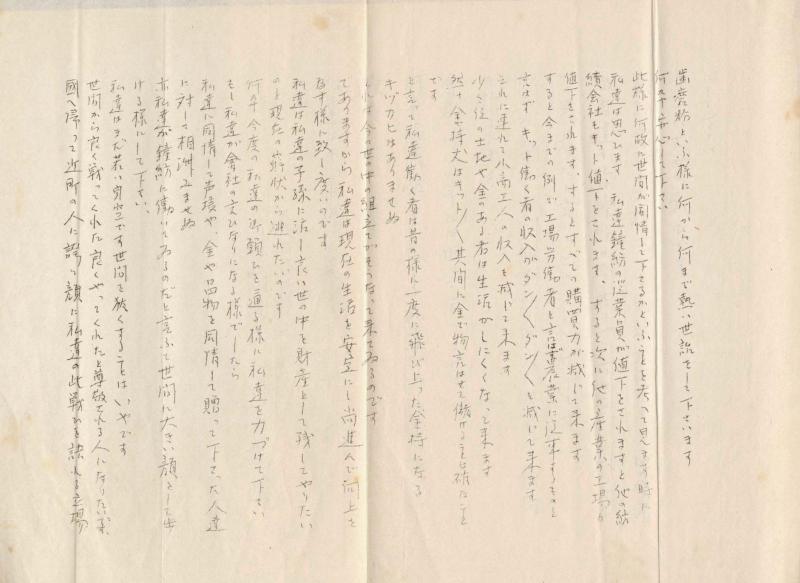 歯磨粉といふ様に何から何まで熱い世話をして下さいます
何卒安心して下さい
此様に何故に世間が同情して下さるかといふことを考へて見ます時に
私達は思ひます 私達鐘紡の従業員が値下をされますと他の紡
績会社もキット値下をされます、すると次に他の産業の工場が
値下をされます、するとすべての購買力が減じて来ます
すると今までの例で工場労働者と言はず農業に従事するものと
言はず キット働く者の収入がダン〱ダン〱と減じて来ます
これに連れて小商工人の収入も減じて来ます
少々位の土地や金のある者は生活がしにくくなって来ます
然し金持丈はキット〱其間に金で物言はせて儲けることは確なこと
です
と言って私達働く者は昔の様に一度に飛び上った金持になる
キヅカヒはありませぬ
これは今の世の中の組立てがそうなって来てゐるのです
でありますから私達は現在の生活を安定にし尚進んで向上を
なす様に致し度いのです
私達は私達の子孫に活し良い世の中を財産として残してやりたい
のと現在の窮状から逃れたいのです
何卒今度の私達の御願ひを通る様に私達を力づけて下さい
もし私達が会社の云ひなりになる様でしたら
私達に同情して声援や、金や品物を同情して贈って下さった人達
に対して相済みませぬ
亦私達が鐘紡に働いてゐるのだと言ふて世間に大きい顔をして出
ける様にして下さい、
私達はまだ若い身空です世間を狭くすることはいやです
世間から良く戦ってくれた良くやってくれたと尊敬される人になりたい
國へ帰って近町の人に誇り顔に私達の此戦ひを語れる立場